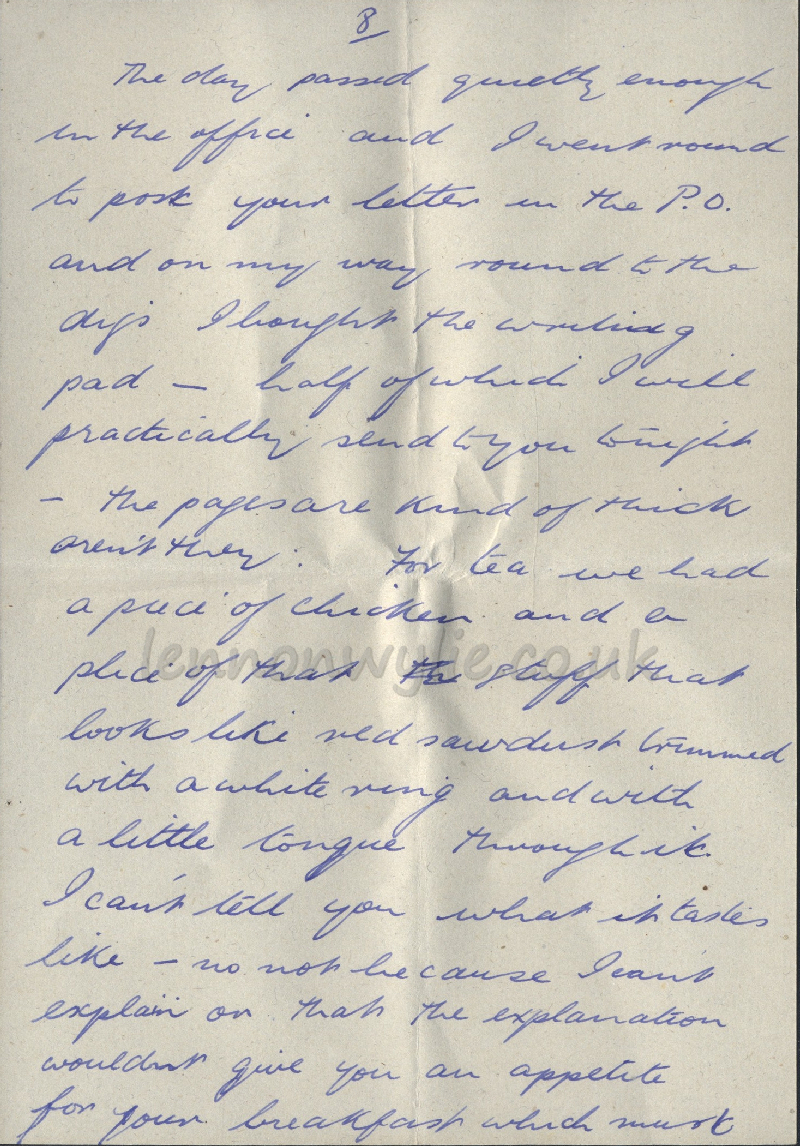 8
The day passed quietly enough
in the office and I went round
to post your letter in the P.O.
and on my way round to the
digs I bought the writing
pad — half of which I will
practically send to you tonight
— the pages are kind of thick
aren't they. For tea we had
a piece of chicken and a
piece of that the stuff that
looks like red sawdust trimmed
with a white ring and with
a little tongue through it.
I can't tell you what it tastes
like — no not because I can't
explain or that the explanation
wouldn't give you an appetite
for your breakfast which must
lennonwylie.co.uk